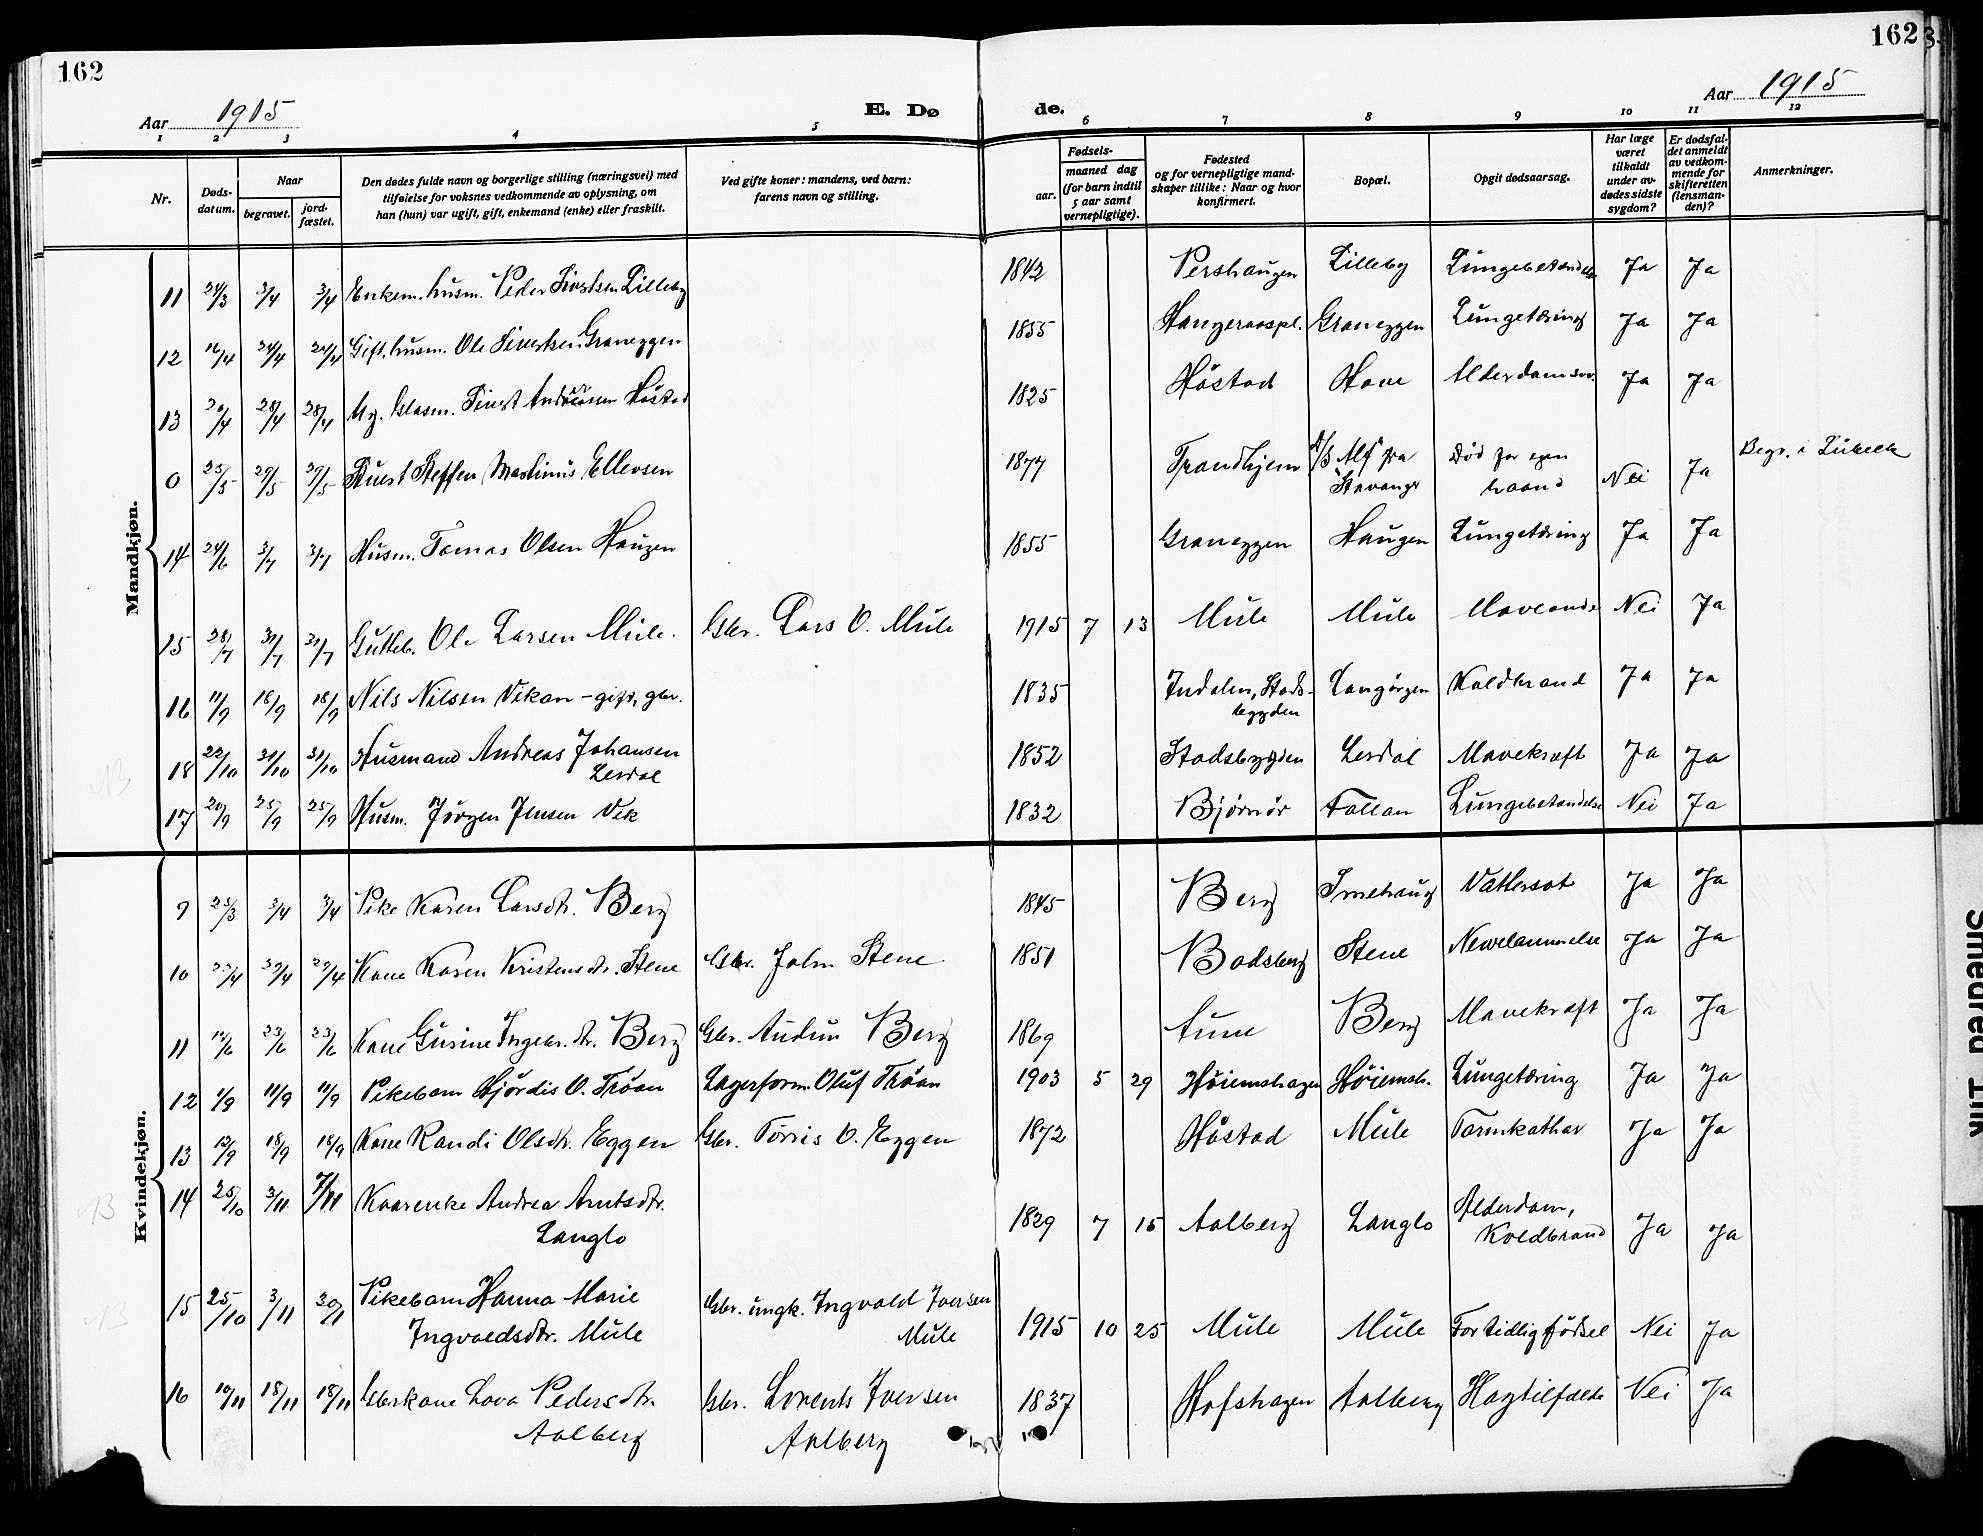 162
162
Aar 1915
E. Dø
de.
Aar 1915
1 2 3 4 5 6 7 8 9 10 11 12
Nr.
Døds-
datum.
Naar
begravet.
jord-
fæstet.
Den dødes fulde navn og borgerlige stilling (næringsvei) med
tilføielse for voksnes vedkommende av oplysning, om
han (hun) var ugift, gift, enkemand (enke) eller fraskilt.
Ved gifte koner: mandens, ved barn:
farens navn og stilling.
Fødsels-
aar.
maaned dag
(for barn indtil
5 aar samt
vernepligtige).
Fødested
og for vernepligtige mand-
skaper tillike: Naar og hvor
konfirmert.
Bopæl.
Opgit dødsaarsag.
Har læge
været
tilkaldt
under av-
dødes sidste
sygdom?
Er dødsfal-
det anmeldt
av vedkom-
mende for
skifteretten
(lensman-
den)?
Anmerkninger.
Mandkjøn.
11 24/3 3/4 3/4 Enkem. husm. Peder Sivertsen Lilleby 1842 Pershaugen Lilleby Lungebetændelse Ja Ja
12 16/4 24/4 24/4 Gift. husm. Ole Sivertsen Graneggen 1855 Haugeraaspl. Graneggen Lungetæring Ja Ja
13 20/4 28/4 28/4 Ug. Glasm. Sivert Andersen Høstad 1825 Høstad Hove Alderdomssv. Ja Ja
0 25/5 29/5 29/5 Stuert Steffen Martinus Ellevsen 1877 Trondhjem D/S Alf fra
Stavanger
Død for egen
haand
Nei Ja Begr. i Lübeck
14 24/6 3/7 3/7 Husm. Tomas Olsen Haugen 1855 Graneggen Haugen Lungetæring Ja Ja
15 28/7 31/7 31/7 Gutteb. Ole Larsen Mule. Gbr. Lars O. Mule 1915 7 13 Mule Mule Maveonde Nei Ja
16 11/9 18/9 18/9 Nils Nilsen Vikan - gift, gbr. 1835 Indalen, Stads-
bygden
Langørgen Koldbrand Ja Ja
18 22/10 31/10 31/10 Husmand Andreas Johansen
Lerdal
1852 Stadsbygden Lerdal Mavekræft Ja Ja
17 20/9 25/9 25/9 Husm. Jørgen Jensen Vik 1832 Bjørnør Follan Lungebetændelse Nei Ja
Kvindekjøn.
9 25/3 3/4 3/4 Pike Karen Larsdtr. Berg 1845 Berg Trnehaug Vattersot Ja Ja
10 23/4 29/4 29/4 Kone Karen Kristensdtr. Stene Gbr. John Stene 1851 Bodsberg Stene Nervelammelse Ja Ja
11 12/6 23/6 23/6 Kone Gurine Ingebr.dtr. Berg Gbr. Audun Berg 1869 Aune Berg Mavekræft Ja Ja
12 1/9 11/9 11/9 Pikebarn Hjørdis O. Trøan Lagerform. Oluf Trøan 1903 5 29 Høiemshagen Høiemsh. Lungetæring Ja Ja
13 12/9 18/9 18/9 Kone Randi Olsdtr. Eggen Gbr. Torris O. Eggen 1872 Høstad Mule Tarmkathar Ja Ja
14 25/10 3/11 7/11 Kaarenke Andrea Arntsdtr.
Langlo
1829 7 15 Aalberg Langlo Alderdom,
Koldbrand
Ja Ja
15 25/10 3/11 30/1 Pikebarn Hanna Marie
Ingvoldsdtr. Mule
Gbr. ungk. Ingvald Iversen
Mule
1915 10 25 Mule Mule For tidlig fødsel Nei Ja
16 10/11 18/11 18/11 Gbrkone Lova Pedersdtr.
Aalberg
Gbr. Lorents Iversen
Aalberg
1837 Hofshagen Aalberg Hogtilfælde Nei Ja